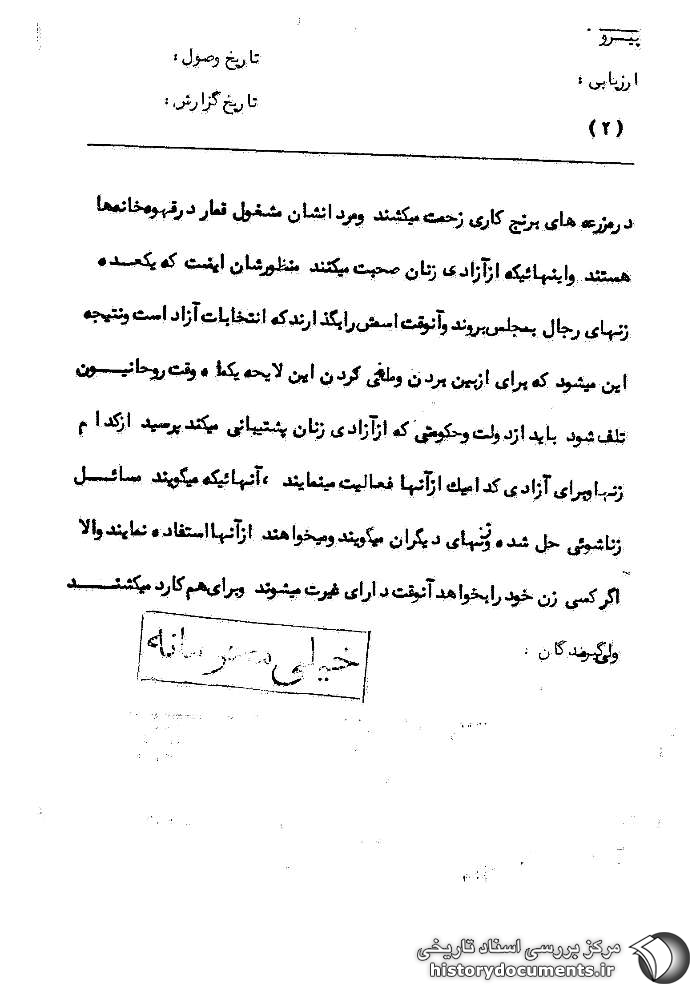 پیرو
تاریخ وصول :
ارزیابی :
تاریخ گزارش :
(۲)
در مزرعه های برنج کاری زحمت میکشند ومرد انشان مشغول قمار در قهوه خانه ها
هستند واینهائیکه از آزادی زنان صحبت میکنند منظورشان اینست که یکعده
زنهای رجال بمجلس بروند وآنوقت اسمش رابگذارند که انتخابات آزاد است ونتیجه
این میشود که برای ازبین بردن وملغی کردن این لایحه یکماه وقت روحانیون
تلف شود باید از دولت وحکومتی که از آزادی زنان پشتیبانی میکند پرسید ازکدام
زنها وبرای آزادی کدامیک ازآنها فعالیت مینمایند ، آنهائیکه میگویند مسائل
زناشوئی حل شده بزنهای دیگران میگویند ومیخواهند ازآنها استفاده نمایند والا
اگر کسی زن خود را بخواهد آنوقت دارای غیرت میشوند وبرای هم کارد میکشند
گیرندگان :
خیلی محرمانه
مرکز بررسی اسناد تاریخی
historydocuments.ir